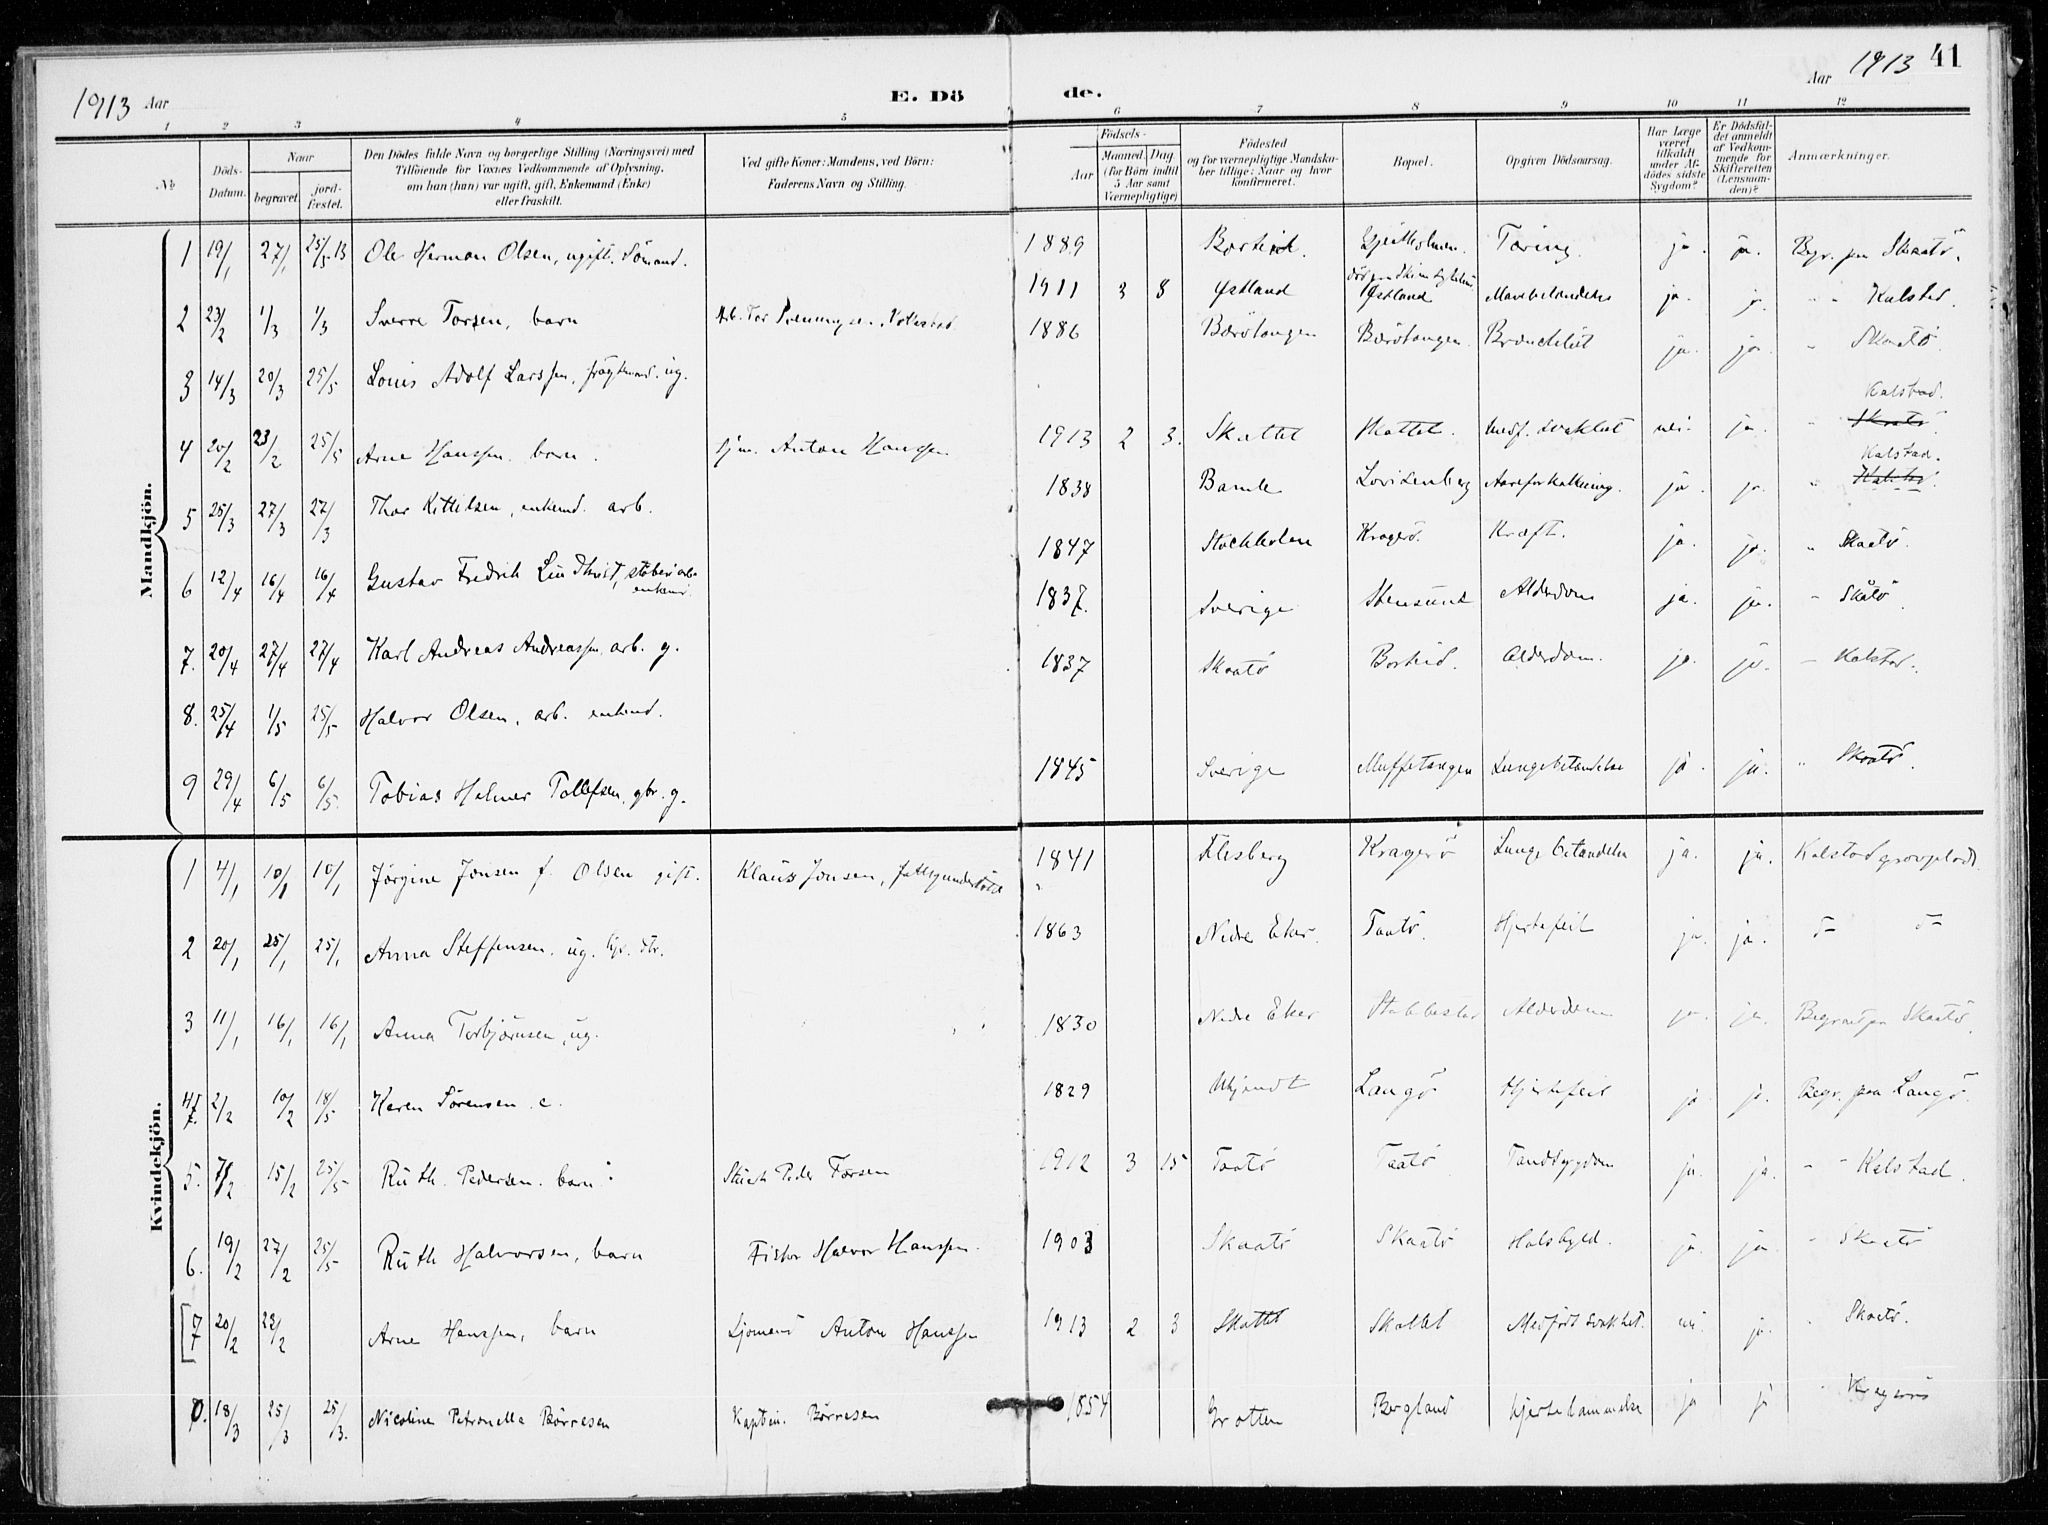 1913 Aar
E. Dö
de.
Aar 1913 41
1 2 3 4 5 6 7 8 9 10 11 12
№
Döds-Datum.
Naar
begravet.
jord-fæstet.
Den Dödes fulde Navn og borgerlige Stilling (Næringsvei) med
Tilföiende for Voxnes Vedkommende af Oplysning,
om han (hun) var ugift, gift, Enkemand (Enke)
eller fraskilt.
Ved gifte Koner: Mandens, ved Börn:
Faderens Navn og Stilling.
Födsels-
Aar
Maaned. Dag
(for Börn indtil
5 Aar samt
Værnepligtige)
Födested
og for værnepligtige Mandska-
ber tillige: Naar og hvor
konfirmeret.
Bopæl.
Opgiven Dödsaarsag.
Har Læge
været
tilkaldt
under Af-
dödes sidste
Sygdom?
Er Dödsfal-
det anmeldt
af Vedkom-
mende for
Skifteretten
(Lensman-
den)?
Anmærkninger.
Mandkjön.
1 19/1 27/1 25/5 13 Ole Herman Olsen, ugift. Sömand. 1889 Gjeitholmen. Tæring ja. ja. Begr. paa Skaatö.
2 23/2 1/3 1/3 Sverre Torsen, barn Arb. Tor 1911 3 8 Østland Østland ja. ja. " " Kalstad.
3 14/3 20/3 25/5 Louis Adolf Larssen, ug. 1886 Bærötangen Bærötangen ja. ja. " Skaatö.
4 20/2 23/2 25/5 Arne Hanssen. barn. Sjm. Anton Hanssen 1913 2 3. Skottet Skottet. medf. svakhet nei. ja. " Kalstad. Skaatö
5 25/3 27/3 27/3 Thor Kittilsen, enkemd. arb. 1838 Bamle Lovisenberg Aareforkalkning. ja. ja. " Kalstad.
6 12/4 16/4 16/4 Gustav Fredrik Lindkvist, enkemd. 1847 Stockholm Kragerö. Kræft. ja. ja. " Skaatö.
7. 20/4 27/4 27/4 Karl Andreas Andreassen, arb. g. 1837. Sverige Stensund Alderdom ja. ja. " Skåtö.
8. 25/4 1/5 25/5 Halvor Olsen, arb. enkemd. 1837 Skaatö Alderdom. ja. ja. " Kalstad.
9 29/4 6/5 6/5. Tobias Helmer Tollefsen, gbr. g. 1845 Sverige Muffetangen Lungebetændelse ja. ja. " Skaatö.
Kvindekjön.
1 4/1 10/1 10/1 Jörgine Jonsen f. Olsen gift. Klaus Jonsen, fattigunderstöttet 1841 Flesberg Kragerö Lungebetændelse ja. ja. Kalstad gravplads.
2 20/1 25/1 25/1 Anna Steffensen. ug. 1863 Nedre Eker. Taatö. Hjertefeil ja. ja.
3 11/1 16/1 16/1 Anna Torbjörnsen, ug. 1830 Nedre Eker Stabbestad Alderdom ja. ja. Begravet paa Skaatö.
4. 2/2 10/2 18/5 Karen Sörensen. e. 1829 Ukjendt Langö Hjertefeil ja. ja. Begr. paa Langö.
5. 7/2 15/2 25/5 Ruth Pedersen. barn. Peder Torsen 1912 3 15 Taatö Taatö Tandsygdom ja. ja. " " Kalstad.
6. 19/2 27/2 25/5 Ruth Halvorsen, barn Fisker Halvor Hanssen. 1903 Skaatö Skaatö Halsbyld. ja. ja. " Skaatö
[7 20/2 22/2 Arne Hanssen, barn Sjömand Anton Hanssen 1913 2 3 Skottet Skottet Medfödt svakhet. nei. ja. " Skaatö.
18/3 25/3 25/3. Nicoline Petronella Börresen Kaptein. Börresen 1854 Bergland Hjertelammelse ja ja " Kragerö